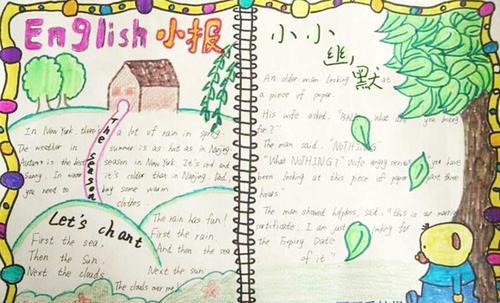 English 小报
In New York there is a lot of rain in spring.
The weather in summer is as hot as in Nanjing.
Autumn is the best season in New York. It's cool and
sunny. In winter it's colder than in Nanjing. Dad,
you need to buy some warm
clothes
The season
Let's chant
First the sea.
Then the sun.
Next the clouds.
The rain has fun!
First the rain.
And then the sea
Next the sun
The clouds over me
小小幽默
An older man looking at
a piece of paper.
His wife asked, what are you looking
for?"
The man said, "NoTHING"
"What NoTHING? Wife angry you have
been looking at this piece of paper past three
hours"
The man showed helpless, said, "this is our marriage
certificate, I am just looking for
the Expiry Date
of it"